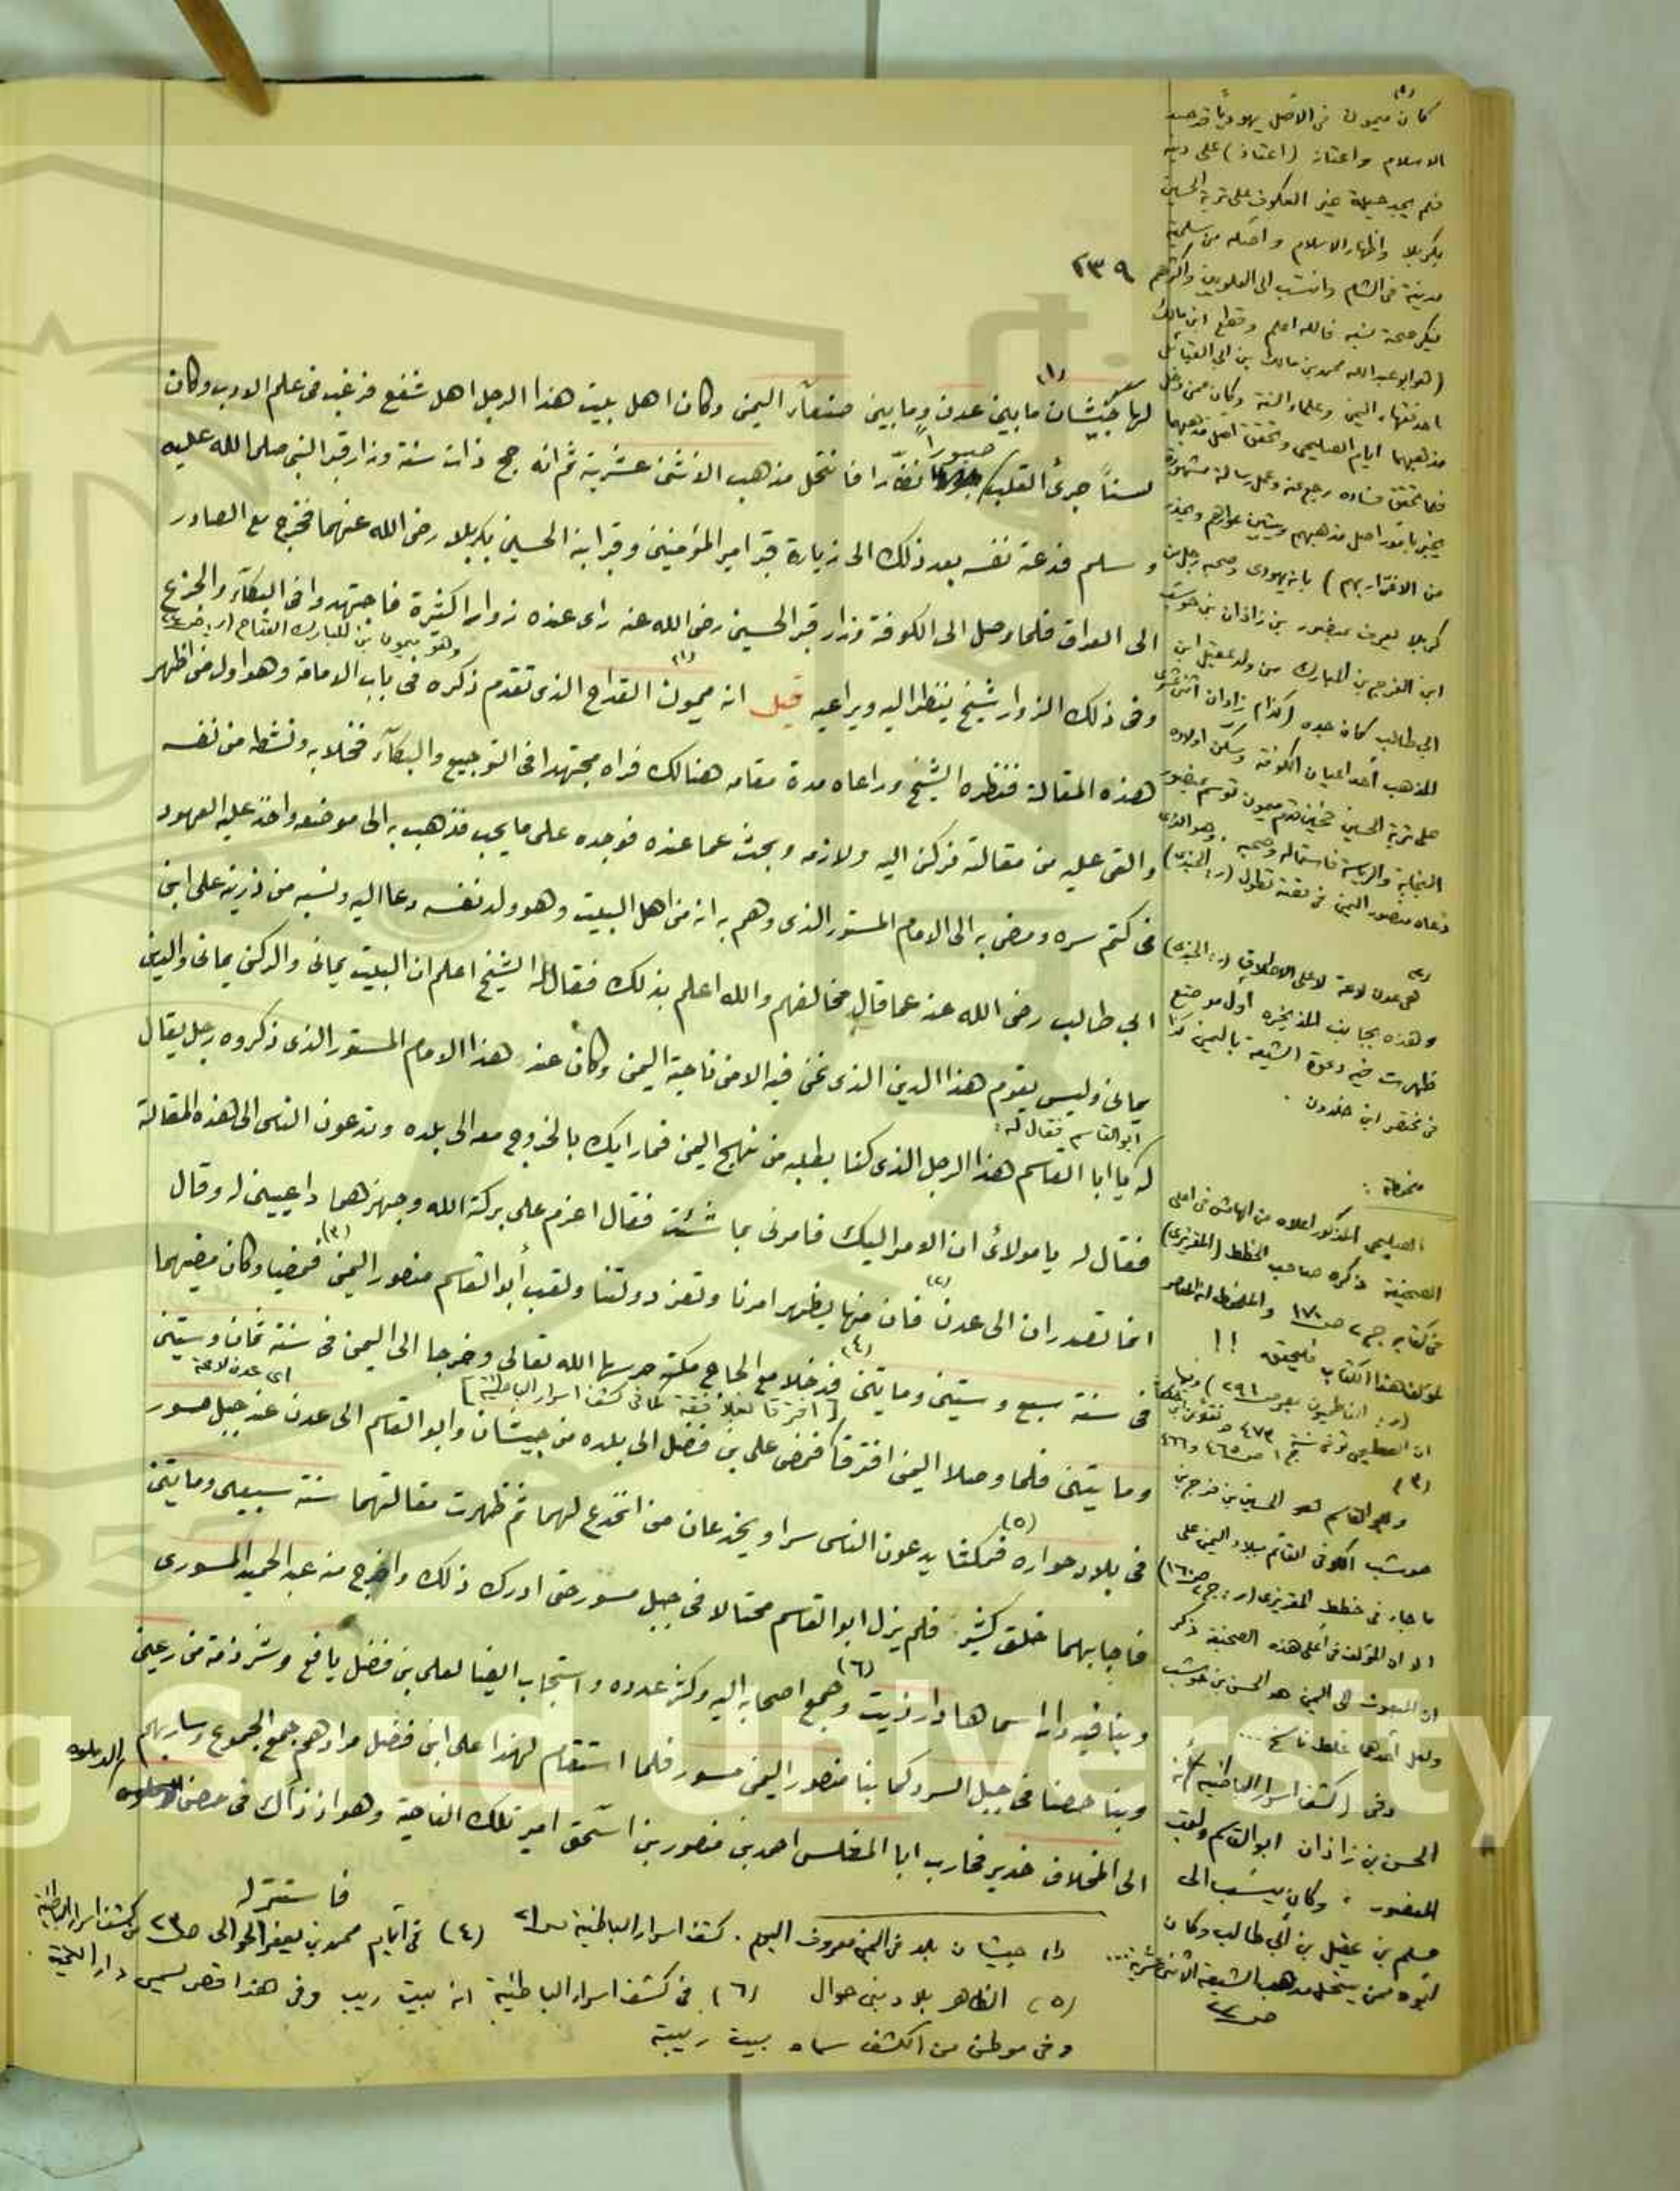 ٢٣٩
لها جيشان ما بين عدن وما بين صنعآء اليمن وكان اهل بيت هذا الرجل اهل شفع فرغب في علم الادب وكان
لسناً جرئ القلب صبوراً نظّارا فانتحل مذهب الاثنى عشرية ثم انه حج ذات سنة وزار قبر النبي صلى الله عليه
وسلم فدعته نفسه بعد ذلك الى زيارة قبر امير المؤمنين وقبر ابنه الحسين بكربلا رضي الله عنهما فخرج مع الصادر
الى العراق فلما وصل الى الكوفة وزار قبر الحسين رضي الله عنه راى عنده زوارا كثيرة فاجتهدوا في البكآء والجزع
وهو ميمون بن المبارك القداح
وفي ذلك الزوار شيخ ينظر اليه ويراعيه قيل انه ميمون القداح (١) الذى تقدم ذكره في باب الامامة وهو اول من اظهر
هذه المقالة فنظره الشيخ وراعاه مدة مقامه هنالك فراه مجتهدا في التوجيع والبكآء فخلا به ونشطه من نفسه
والقى عليه من مقالته فركن اليه ولازمه وبحث عما عنده فوجده على ما يحب فذهب به الى موضعه واخذ عليه العهود
في كتم سره ومضى به الى الامام المستور الذى وهم به انه من اهل البيت وهو ولد نفسه دعا اليه ونسبه من ذرية على ابن
ابي طالب رضي الله عنه عما قال مخالفهم والله اعلم بذلك فقال له الشيخ اعلم ان البيت يماني والركن يماني والدين
يماني وليس يقوم هذا الدين الذى نحن فيه الا من ناحية اليمن وكان عند هذا الامام المستور الذى ذكروه رجل يقال
ابو القاسم فقال له:
له يا ابا القاسم هذا الرجل الذى كنا نطلبه من نهج اليمن فما رايك بالخروج معه الى بلده وتدعون الناس الى هذه المقالة
فقال له يا مولائ ان الامر اليك فامرني بما شئت فقال اعزم على بركة الله وجهزهما داعيين له وقال
انما تصدران الى عدن (٢) فان منها يظهر امرنا وتعز دولتنا ولقب أبو القاسم منصور اليمن (٣) فمضيا وكان مضيهما
في سنة سبع وستين ومايتين (٤) فدخلا مع الحاج مكة حرسها الله تعالى وخرجا الى اليمن في سنة ثمان وستين
[افترقا بغلافقة كما في كشف اسرار الباطنية]
اى عدن لاعة
ومايتين فلما وصلا اليمن افترقا فمضى على بن فضل الى بلده من جيشان وابو القاسم الى عدن عند جبل مسور
في بلاد حواره (٥) فمكثا يدعون الناس سرا ويخدعان من انخدع لهما ثم ظهرت مقالتهما سنة سبعين ومايتين
فاجابهما خلق كثير فلم يزل ابو القاسم محتالا في جبل مسور حتى ادرك ذلك واخرج منه عبد الحميد المسورى
وبنا فيه دارا اسماها دار ذيت (٦) وجمع اصحابه اليه وكثر عدده واستجاب ايضا لعلى بن فضل يافع وشرذمة من رعين
وبنا حصنا في جبل السرو كما بنا منصور اليمن مسور فلما استقام لهذا على ابن فضل مرادهم جمع الجموع وسار بهم
الى المخلاف خدير فحارب ابا المغلس احمد بن منصور بن اسحق امير تلك الناحية وهو اذ ذاك في حصن الدملوه
فاستنزله
(١) جيشان بلد في اليمن معروف اليوم. كشف اسرار الباطنية ص٢١ (٤) في أيام محمد بن يعفر الحوالى ص٢٣ من كشف اسرار الباطنية
(٥) الظاهر بلاد بني حوال (٦) في كشف اسرار الباطنية انه بيت ريب وفي هذا قصر يسمى دار التحية
وفي موطن من الكشف سماه بيت ريبة
كان ميمون في الاصل يهوديا قد حسد
الاسلام واعتاز (اغتاظ) على دينه
فلم يجد حيلة غير العكوف على تربة الحسين
بكربلا واظهار الاسلام واصله من سلمية
مدينة في الشام وانتسب الى العلويين واكثرهم
ينكر صحة نسبه فالله اعلم وقطع ابن مالك
(هو ابو عبد الله محمد بن مالك بن ابي القبائل
احد فقهاء اليمن وعلماء السنة وكان ممن دخل
مذهبهما ايام الصليحي وتحقق اصل مذهبهما
فلما تحقق فساده رجع عنه وعمل رسالة مشهورة
يخبر باصل مذهبهم ويبين عوارهم ويحذر
من الاغترار بهم) بانه يهودى وصحبه رجل من
كربلا يعرف بمنصور بن زاذان بن حوشب
ابن الفرج بن المبارك من ولد عقيل ابن
ابي طالب كان جده (كذا) زاذان اثنى عشرى
المذهب أحد اعيان الكوفة وسكن اولاده
على تربة الحسين فحين قدم ميمون توسم بمنصور
النجابة والرياسة فاستماله وصحبه. وهو الذى
دعاه منصور اليمن في قصة تطول (ر: الجندى)
(٢)
هي عدن لاعة لا على الاطلاق (ر: الجندى)
وهذه بجانب المذيخرة أول موضع
ظهرت فيه دعوة الشيعة باليمن كذا
في مختصر ابن خلدون.
ملحوظة:
الصليحي المذكور اعلاه من الهامش في اعلى
الصحيفة ذكره صاحب الخطط (المقريزى)
في كتابه ج ٢ ص ١٧٠
لمؤلف هذا الكتاب فليحقق!!
(٣)
وابو القاسم هو الحسين بن فرج بن
حوشب الكوفي القائم ببلاد اليمن على
ما جاء في خطط المقريزى (ر: ج٢ ص١٦٠)
الا ان المؤلف في أعلى هذه الصحيفة ذكر
ان المبعوث الى اليمن هو الحسن بن حوشب
ولعل أحدهما غلط ناسخ...
وفي (كشف اسرار الباطنية) أنه
الحسن بن زاذان ابو القاسم ولقب
المنصور، وكان ينسب الى
مسلم بن عقيل بن أبي طالب وكان
أبوه ممن ينتحل مذهب الشيعة الاثنى عشرية...
ص٢٢